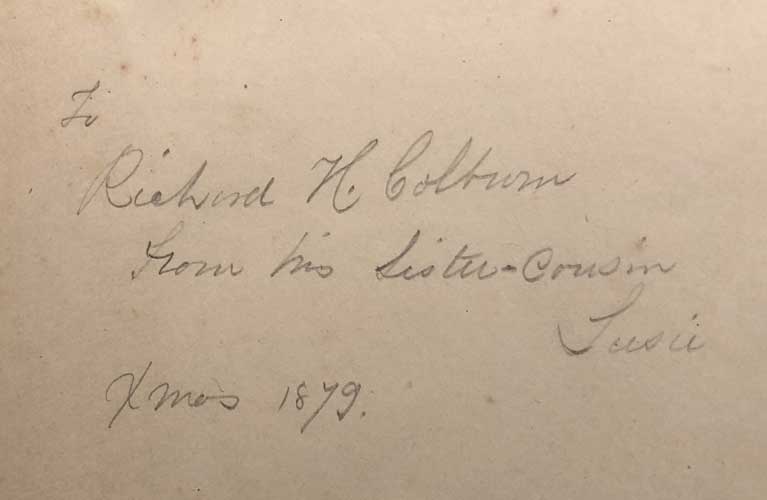 To
Richard H. Colburn
From his Sister-Cousin
Susie
Xmas 1879.